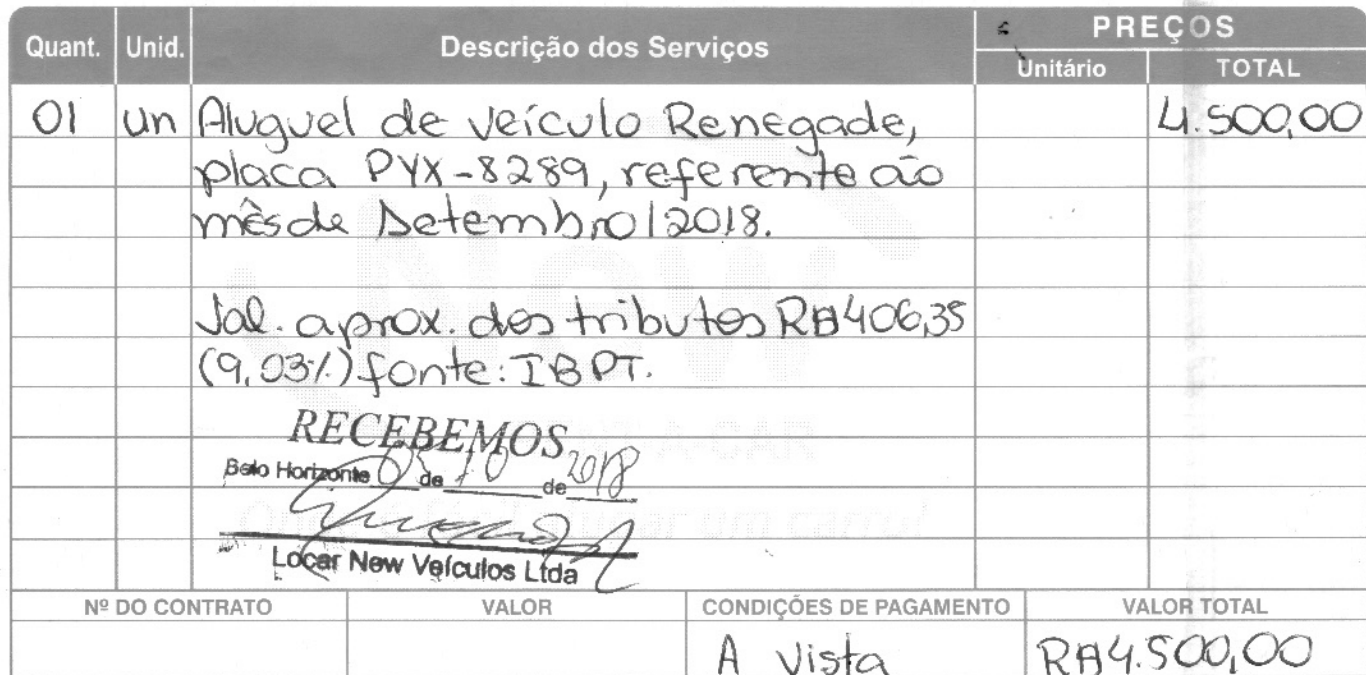 Quant. Unid. Descrição dos Serviços PREÇOS
Unitário TOTAL
01 un Aluguel de veículo Renegade, 4.500,00
placa PYX-8289, referente ao
mês de Setembro/2018.
Val. aprox. dos tributos R$406,35
(9,03%) fonte: IBPT.
RECEBEMOS
Belo Horizonte 05 de 10 de 2018
Locar New Veículos Ltda
Nº DO CONTRATO VALOR CONDIÇÕES DE PAGAMENTO VALOR TOTAL
A vista R$4.500,00